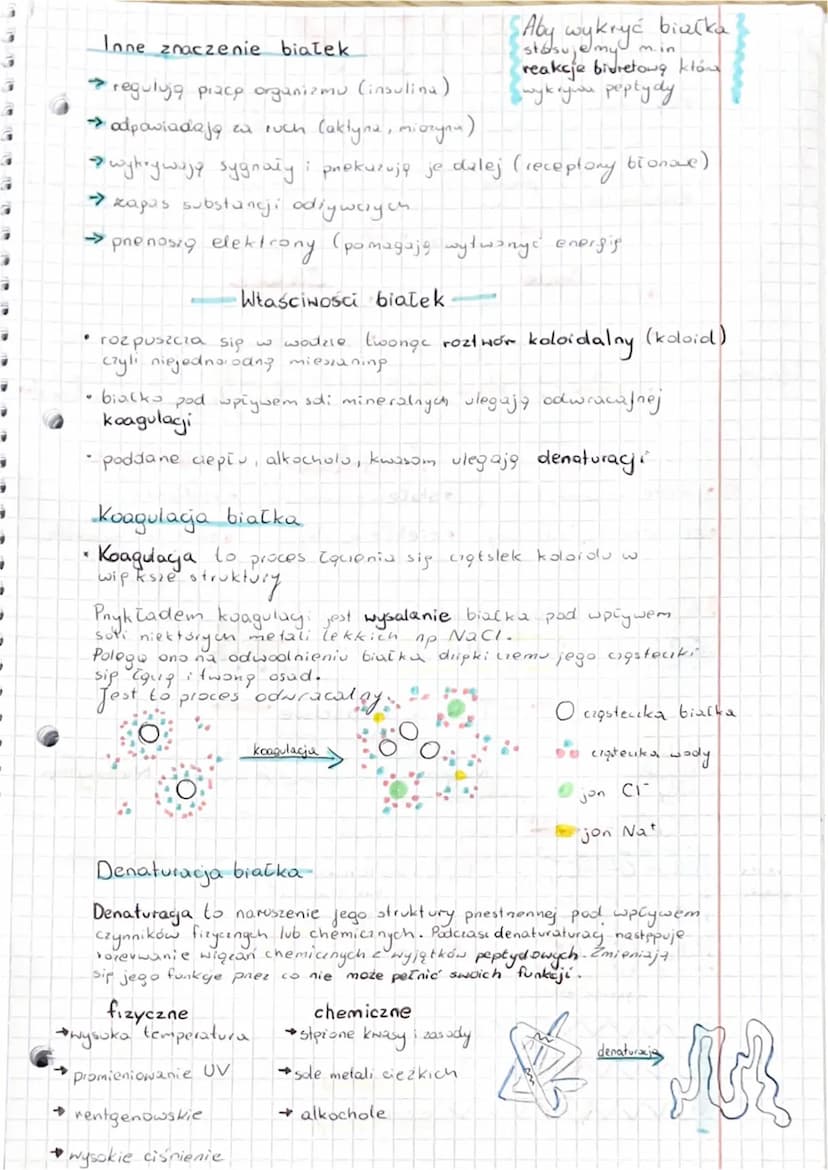 Aby wykryć białka
stosujemy m.in
reakcje biuretową która
wykrywa peptydy
Inne znaczenie białek
→ regulują pracę organizmu (insulina)
→ odpowiadają za ruch (aktyna, miozyna)
→ wykrywają sygnały i przekazują je dalej (receptory błonowe)
→ zapas substancji odżywczych
→ przenoszą elektrony (pomagają wytworzyć energię
Właściwości białek
• rozpuszcza się w wodzie tworząc roztwór koloidalny (koloid)
czyli niejednorodną mieszaninę
• białka pod wpływem soli mineralnych ulegają odwracalnej
koagulacji
• poddane ciepłu, alkocholu, kwasom ulegają denaturacji
Koagulacja białka
• Koagulacja to proces łączenia się cząstek koloidu w
większe struktury
Przykładem koagulacji jest wysalanie białka pod wpływem
soli niektórych metali lekkich np NaCl.
Polega ono na odwodnieniu białka dzięki czemu jego cząsteczki
się łączą i tworzą osad.
Jest to proces odwracalny.
koagulacja
cząsteczka białka
cząsteczka wody
jon Cl⁻
jon Na⁺
Denaturacja białka
Denaturacja to naruszenie jego struktury przestrzennej pod wpływem
czynników fizycznych lub chemicznych. Podczas denaturaturacj następuje
rozerwanie wiązań chemicznych z wyjątków peptydowych. Zmieniają
się jego funkcje przez co nie może pełnić swoich funkcji.
fizyczne
→ wysoka temperatura
→ promieniowanie UV
→ rentgenowskie
→ wysokie ciśnienie
chemiczne
→ stężone kwasy i zasady
→ sole metali ciężkich
→ alkochole
denaturacja